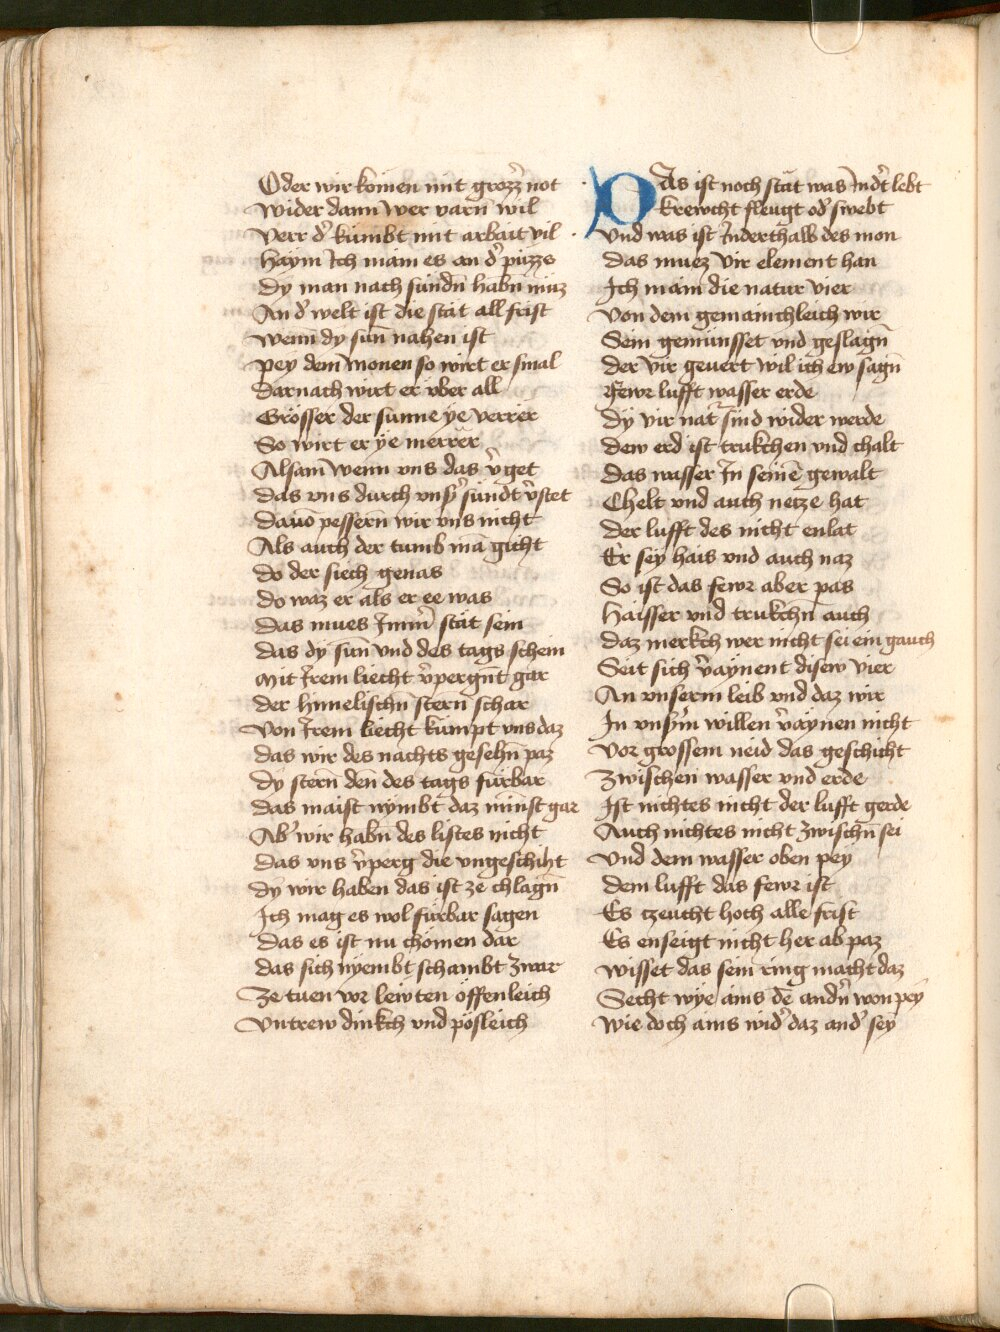 Oder wir komen mit grozz̄ not
Wider dann wer varn wil
Verr d' kumbt mit arbait vil
Haym Ich main es an d' puzze
Dy man nach sundn̄ habn̄ muz
An d' welt ist die stät all frist
Wenn dy sun̄ nahen ist
Pey dem monen so wirt er smal
Darnach wirt er vber all
Grösser der sunne ye verrer
So wirt er ye merrer
Alsam wenn vns das v̄get
Das vns durch vns' sundt v̄stet
Dauō pessern wir vns nicht
Als auch der tumb mā gicht
Do der siech genas
Do waz er als er ee was
Das mues Imm' stät sein
Das dy sun̄ vnd des tags schein
Mit Irem liecht v̄pergn̄t gar
Der himelischn̄ stern schar
Von Irem liecht kumpt vns daz
Das wir des nachts gesehn̄ paz
Dy stern den̄ des tags furbar
Das maist nymbt daz minst gar
Ab' wir habn̄ des listes nicht
Das vns v̄perg die vngeschiht
Dy wir haben das ist ze chlagn̄
Ich mag es wol furbar sagen
Das es ist nu chömen dar
Das sich nyembt schambt zwar
Ze tuen vor lewten offenleich
Vntrew dinkch vnd pösleich
DAs ist noch stät was Indt' lebt
Krewcht fleugt od' swebt
Vnd was ist Inderthalb des mon
Das muez vir element han
Ich main die natur vier
Von dem gemainchleich wir
Sein gemünsset vnd geslagn̄
Der vir geuert wil ich ew sagn̄
Fewr lufft wasser erde
Dy vir nat' sind wider werde
Dew erd ist trukchen vnd chalt
Das wasser In seinē gewalt
Chelt vnd auch netze hat
Der lufft des nicht enlat
Er sey hais vnd auch naz
So ist das fewr aber pas
Haisser vnd trukchn̄ auch
Daz merkch wer nicht sei ein gauch
Seit sich v̄aynent disew vier
An vnserm leib vnd daz wir
In vns'm willen v̄aynen nicht
Vor grossem neid das geschicht
Zwischen wasser vnd erde
Ist nichtes nicht der lufft gerde
Auch nichtes nicht zwischn̄ sei
Vnd dem wasser oben pey
Dem lufft das fewr ist
Es czeucht hoch alle frist
Es enseigt nicht her ab paz
Wisset das sein ring macht daz
Secht wye ains dē andn̄ won pey
Wie doch ains wid' daz and' sey